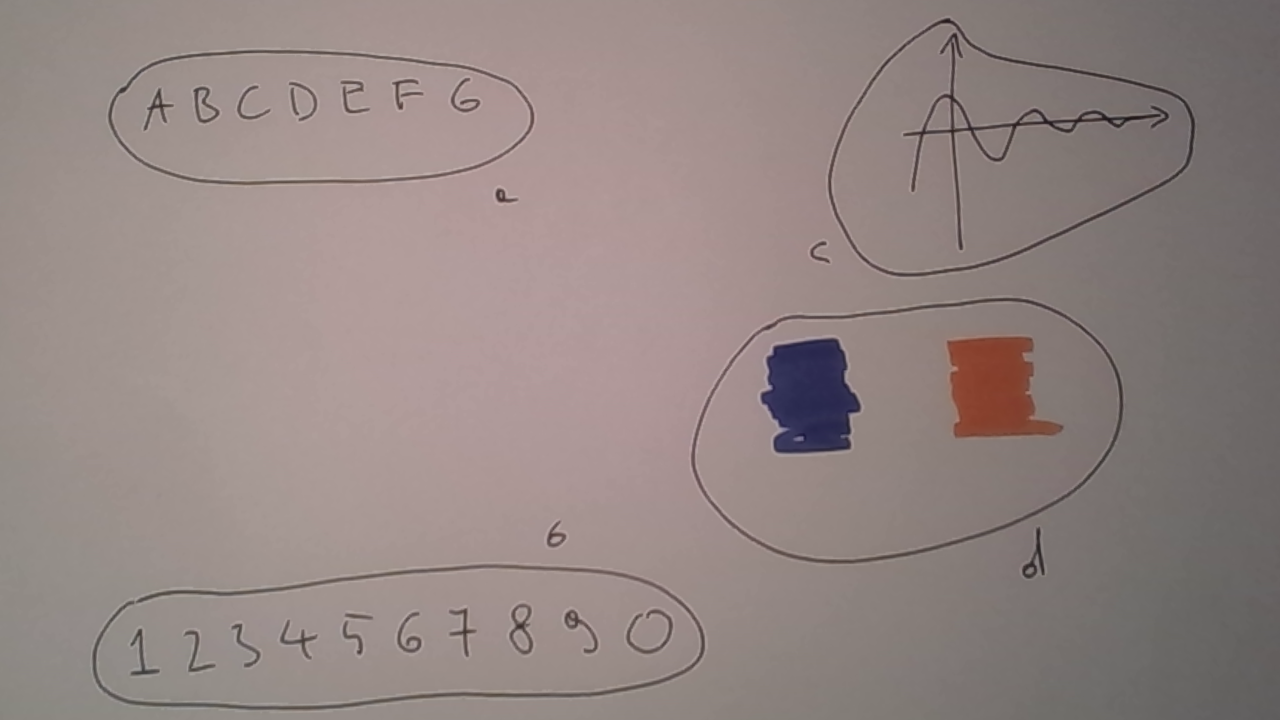 A B C D E F G
a
c
d
b
1 2 3 4 5 6 7 8 9 0